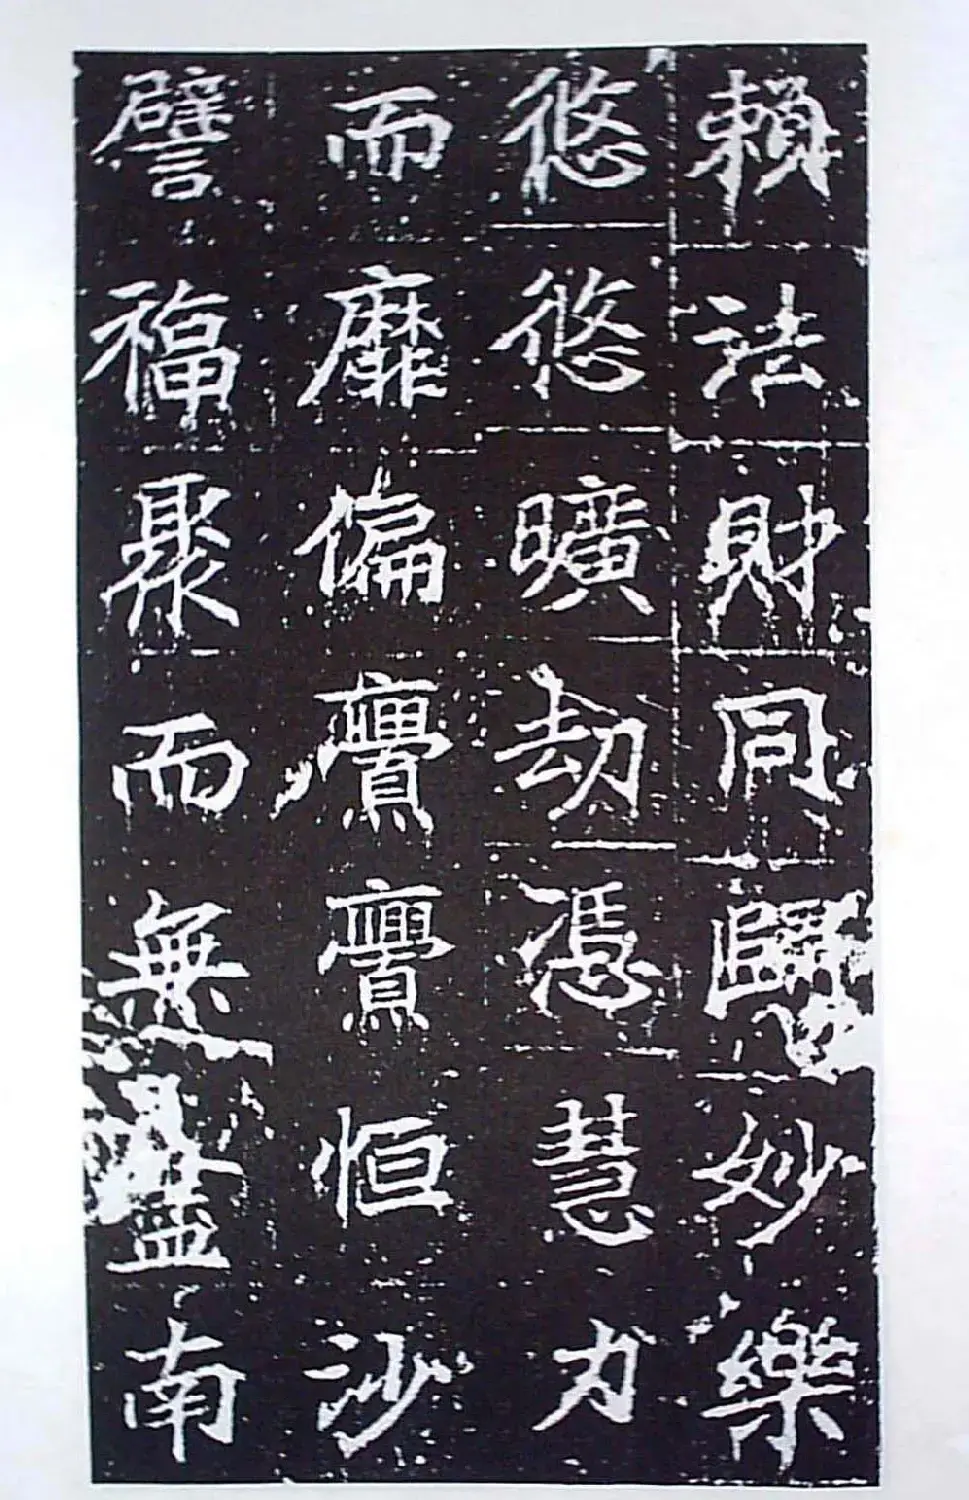 賴法財同歸妙樂
悠悠曠劫憑慧力
而靡偏亹亹恒沙
譬福聚而無盡南